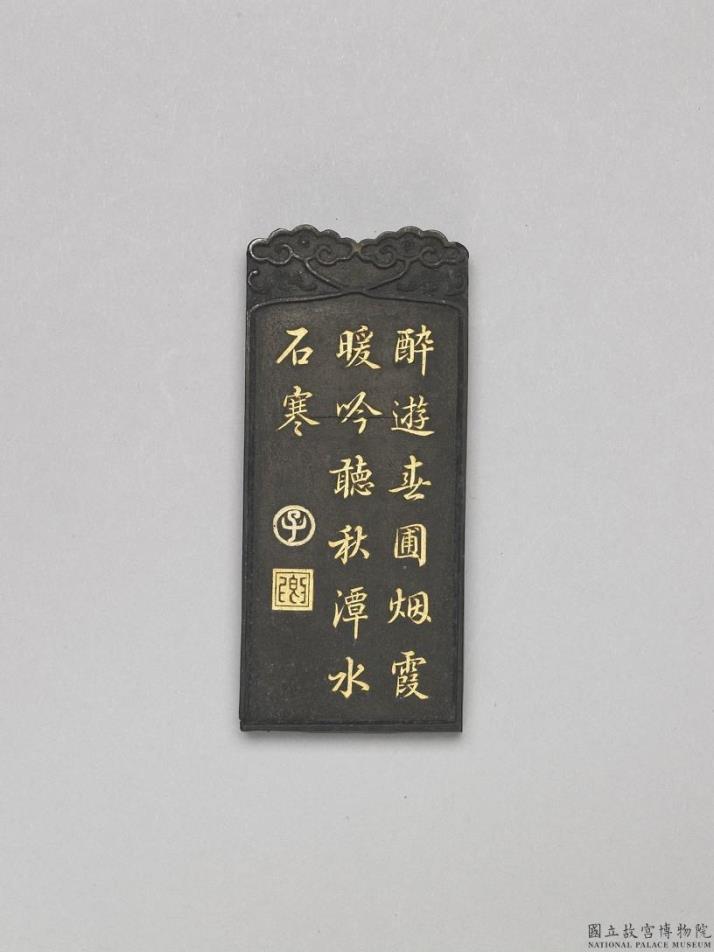 醉遊春圃烟霞
暖吟聽秋潭水
石寒
子
國立故宮博物院
NATIONAL PALACE MUSEUM